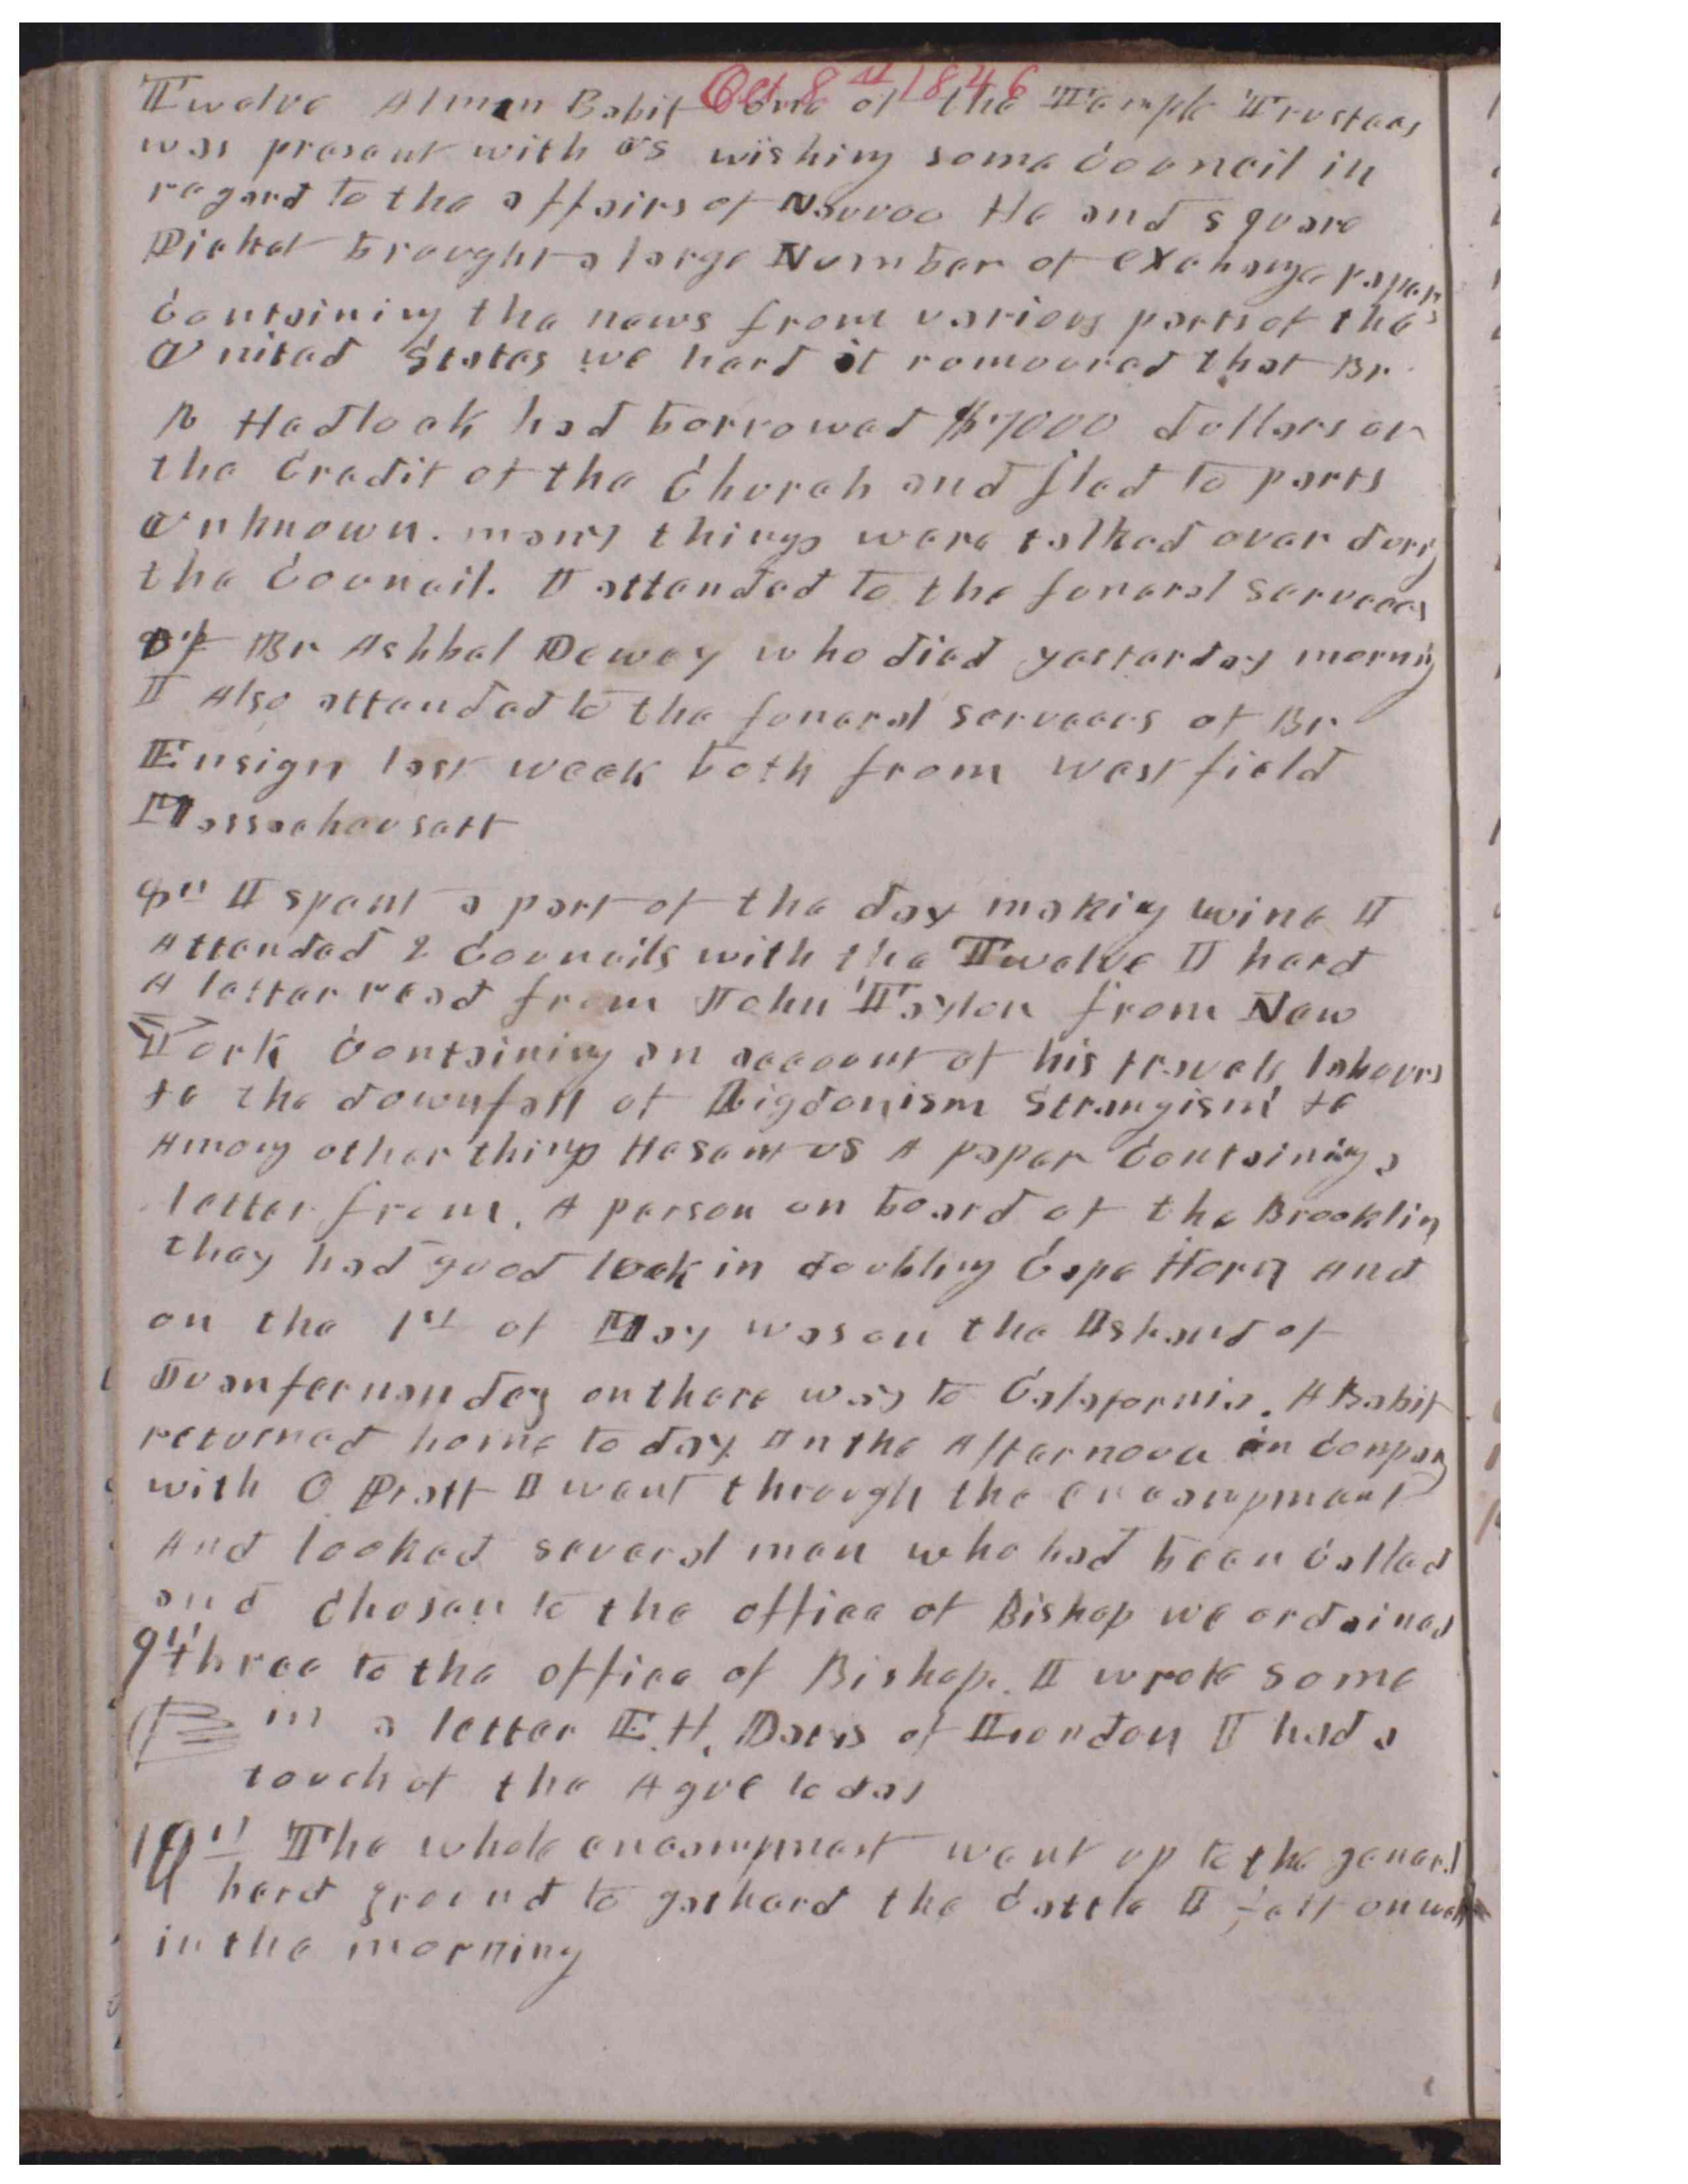 Oct 8th 1846
Twelve Almon Babit one of the Temple Trustees
was present with us wishing some Council in
regard to the affairs of Nauvoo He and Squire
Picket brought a large Number of exchange papers
Containing the news from various parts of the
United States we hard it romoured that Br
R Hadlock had borrowed $7000 dollars on
the Credit of the Church and fled to parts
unknown. many things were talked over durig
the Council. I attended to the funeral serveces
of Br Ashbel Dewey who died yesterday mornig
I Also attended to the funeral serveces of Br
Ensign last week both from westfield
Massachusett
8th I spent a part of the day making wine I
Attended 2 Councils with the Twelve I hard
A letter read from John Taylor from New
York Containing an account of his travels labours
to the downfall of Rigdonism Strangism &c
Among other things He sent us A paper Containing a
letter from A person on board of the Brooklin
they had good luck in doubling Cape Horn And
on the 1st of May was on the Island of
Juanfernandez on there way to Calafornia. A Babit
returned home to day. In the Afternoon in Company
with O Pratt I went through the encampment
And looked several men who had been Called
and Chosen to the office of Bishop we ordained
three to the office of Bishop. I wrote some
9th in a letter E. H. Davis of London I had a
touch of the Ague to day
10th The whole encampment went up to the general
herd ground to gatherd the Cattle I felt onwell
in the morning